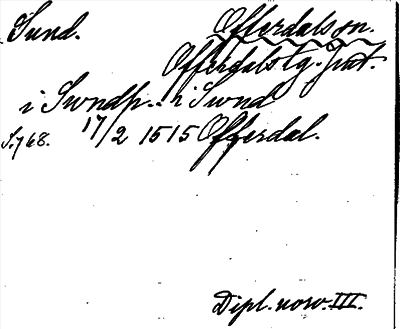 Sund. Offerdals sn.
Offerdals tg. Jmt.
i Swndh... i Swnd
S. 768. 17/2 1515 Offerdal.
Dipl. norv. III.